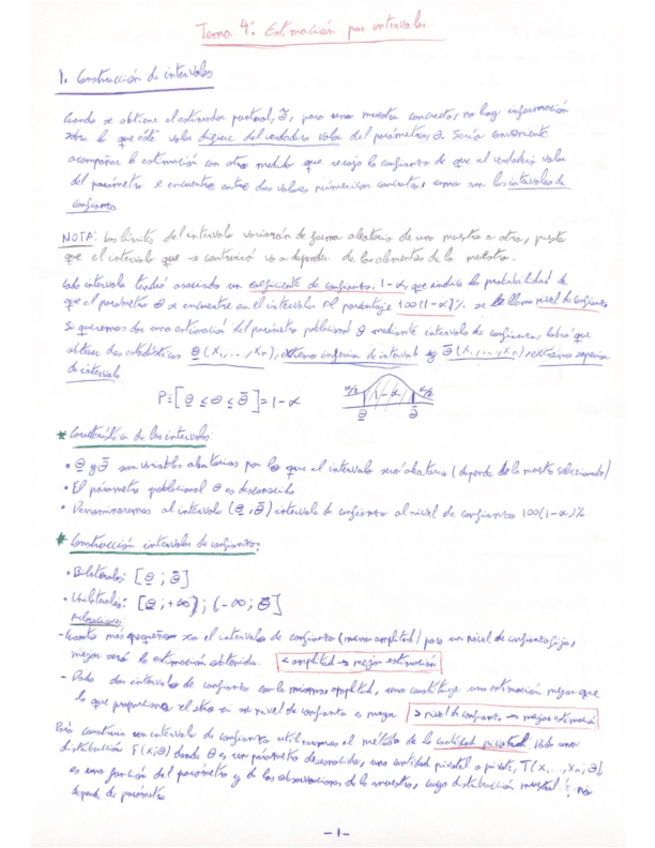 Tema 4: Estimación por intervalos
1. Construcción de intervalos
Cuando se obtiene el estimador puntual, θ̂, para una muestra concreta, no hay información
sobre lo que éste valor difiere del verdadero valor del parámetro, θ. Sería conveniente
acompañar la estimación con otra medida que recoja la confianza de que el verdadero valor
del parámetro se encuentre entre dos valores numéricos concretos, como son los intervalos de
confianza.
NOTA: Los límites del intervalo variarán de forma aleatoria de una muestra a otra, puesto
que el intervalo que se construirá va a depender de los elementos de la muestra.
Cada intervalo tendrá asociado un coeficiente de confianza, 1-α, que indica la probabilidad de
que el parámetro θ se encuentre en el intervalo. Al porcentaje 100(1-α)% se le llama nivel de confianza
Si queremos dar una estimación del parámetro poblacional θ mediante intervalo de confianza, habrá que
obtener dos estadísticos θ̲(X₁,...,Xₙ), extremo inferior de intervalo y θ̄(X₁,...,Xₙ), extremo superior
de intervalo.
P=[θ̲ ≤ θ ≤ θ̄]=1-α
α/2 1-α α/2
θ̲ θ̄
* Característica de los intervalos:
• θ̲ y θ̄ son variables aleatorias por lo que el intervalo será aleatorio (depende de la muestra seleccionada)
• El parámetro poblacional θ es desconocido
• Denominaremos al intervalo (θ̲, θ̄) intervalo de confianza al nivel de confianza 100(1-α)%
* Construcción intervalos de confianza:
• Bilaterales: [θ̲ ; θ̄]
• Unilaterales: [θ̲ ; +∞) ; (-∞; θ̄]
- Cuanto más pequeño sea el intervalo de confianza (menor amplitud) para un nivel de confianza fijo,
mejor será la estimación obtenida. < amplitud → mejor estimación
- Dado dos intervalos de confianza con la misma amplitud, uno constituye una estimación mejor que
la que proporciona el otro si su nivel de confianza es mayor > nivel de confianza → mejor estimación
Para construir un intervalo de confianza utilizaremos el método de la cantidad pivotal. Dada una
distribución F(X;θ) donde θ es un parámetro desconocido, una cantidad pivotal o pivote, T(X₁,...,Xₙ;θ),
es una función del parámetro y de las observaciones de la muestra, cuya distribución muestral no
depende de parámetro
-1-